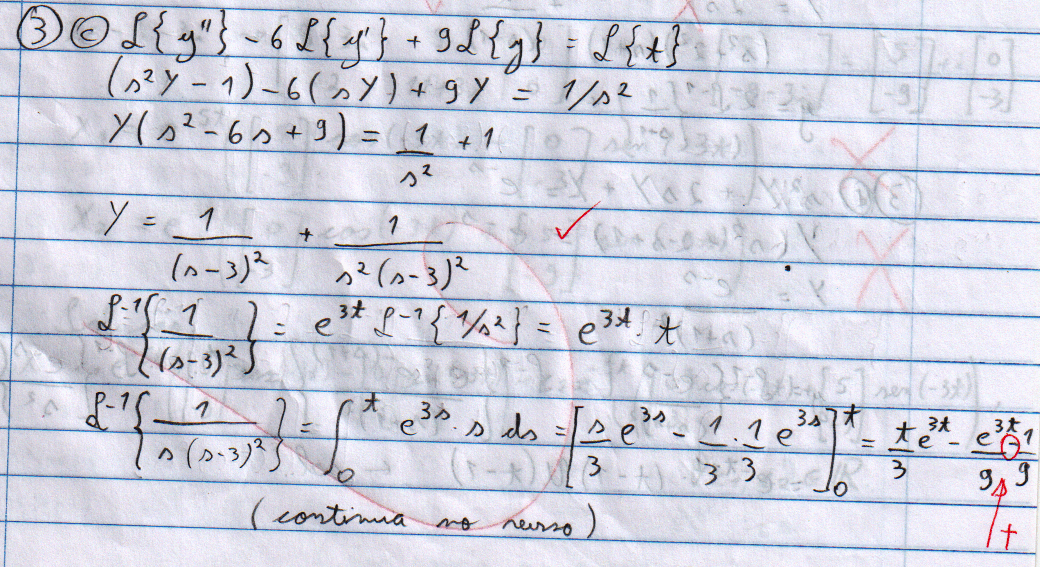 ③ ⓒ ℒ{y"} - 6ℒ{y'} + 9ℒ{y} = ℒ{t}
(s²Y - 1) - 6(sY) + 9Y = 1/s²
Y(s² - 6s + 9) = 1/s² + 1
Y = 1/(s-3)² + 1/(s²(s-3)²) ✓
ℒ⁻¹{1/(s-3)²} = e^{3t} ℒ⁻¹{1/s²} = e^{3t} · t
ℒ⁻¹{1/(s(s-3)²)} = ∫₀ᵗ e^{3s} · s ds = [s/3 e^{3s} - 1/3 · 1/3 e^{3s}]₀ᵗ = t/3 e^{3t} - e^{3t}/9 - 1/9
+
(continua no verso)